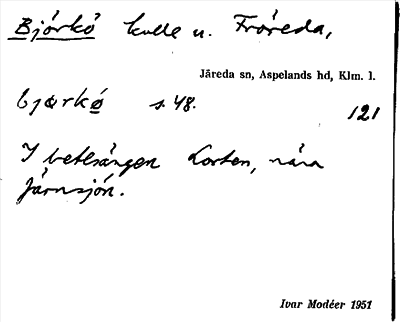 Björkö kulle u. Fröreda,
Järeda sn, Aspelands hd, Klm. l.
bjærkö s. 48.
121
I betesängen Korten, nära
Järnsjön.
Ivar Modéer 1951